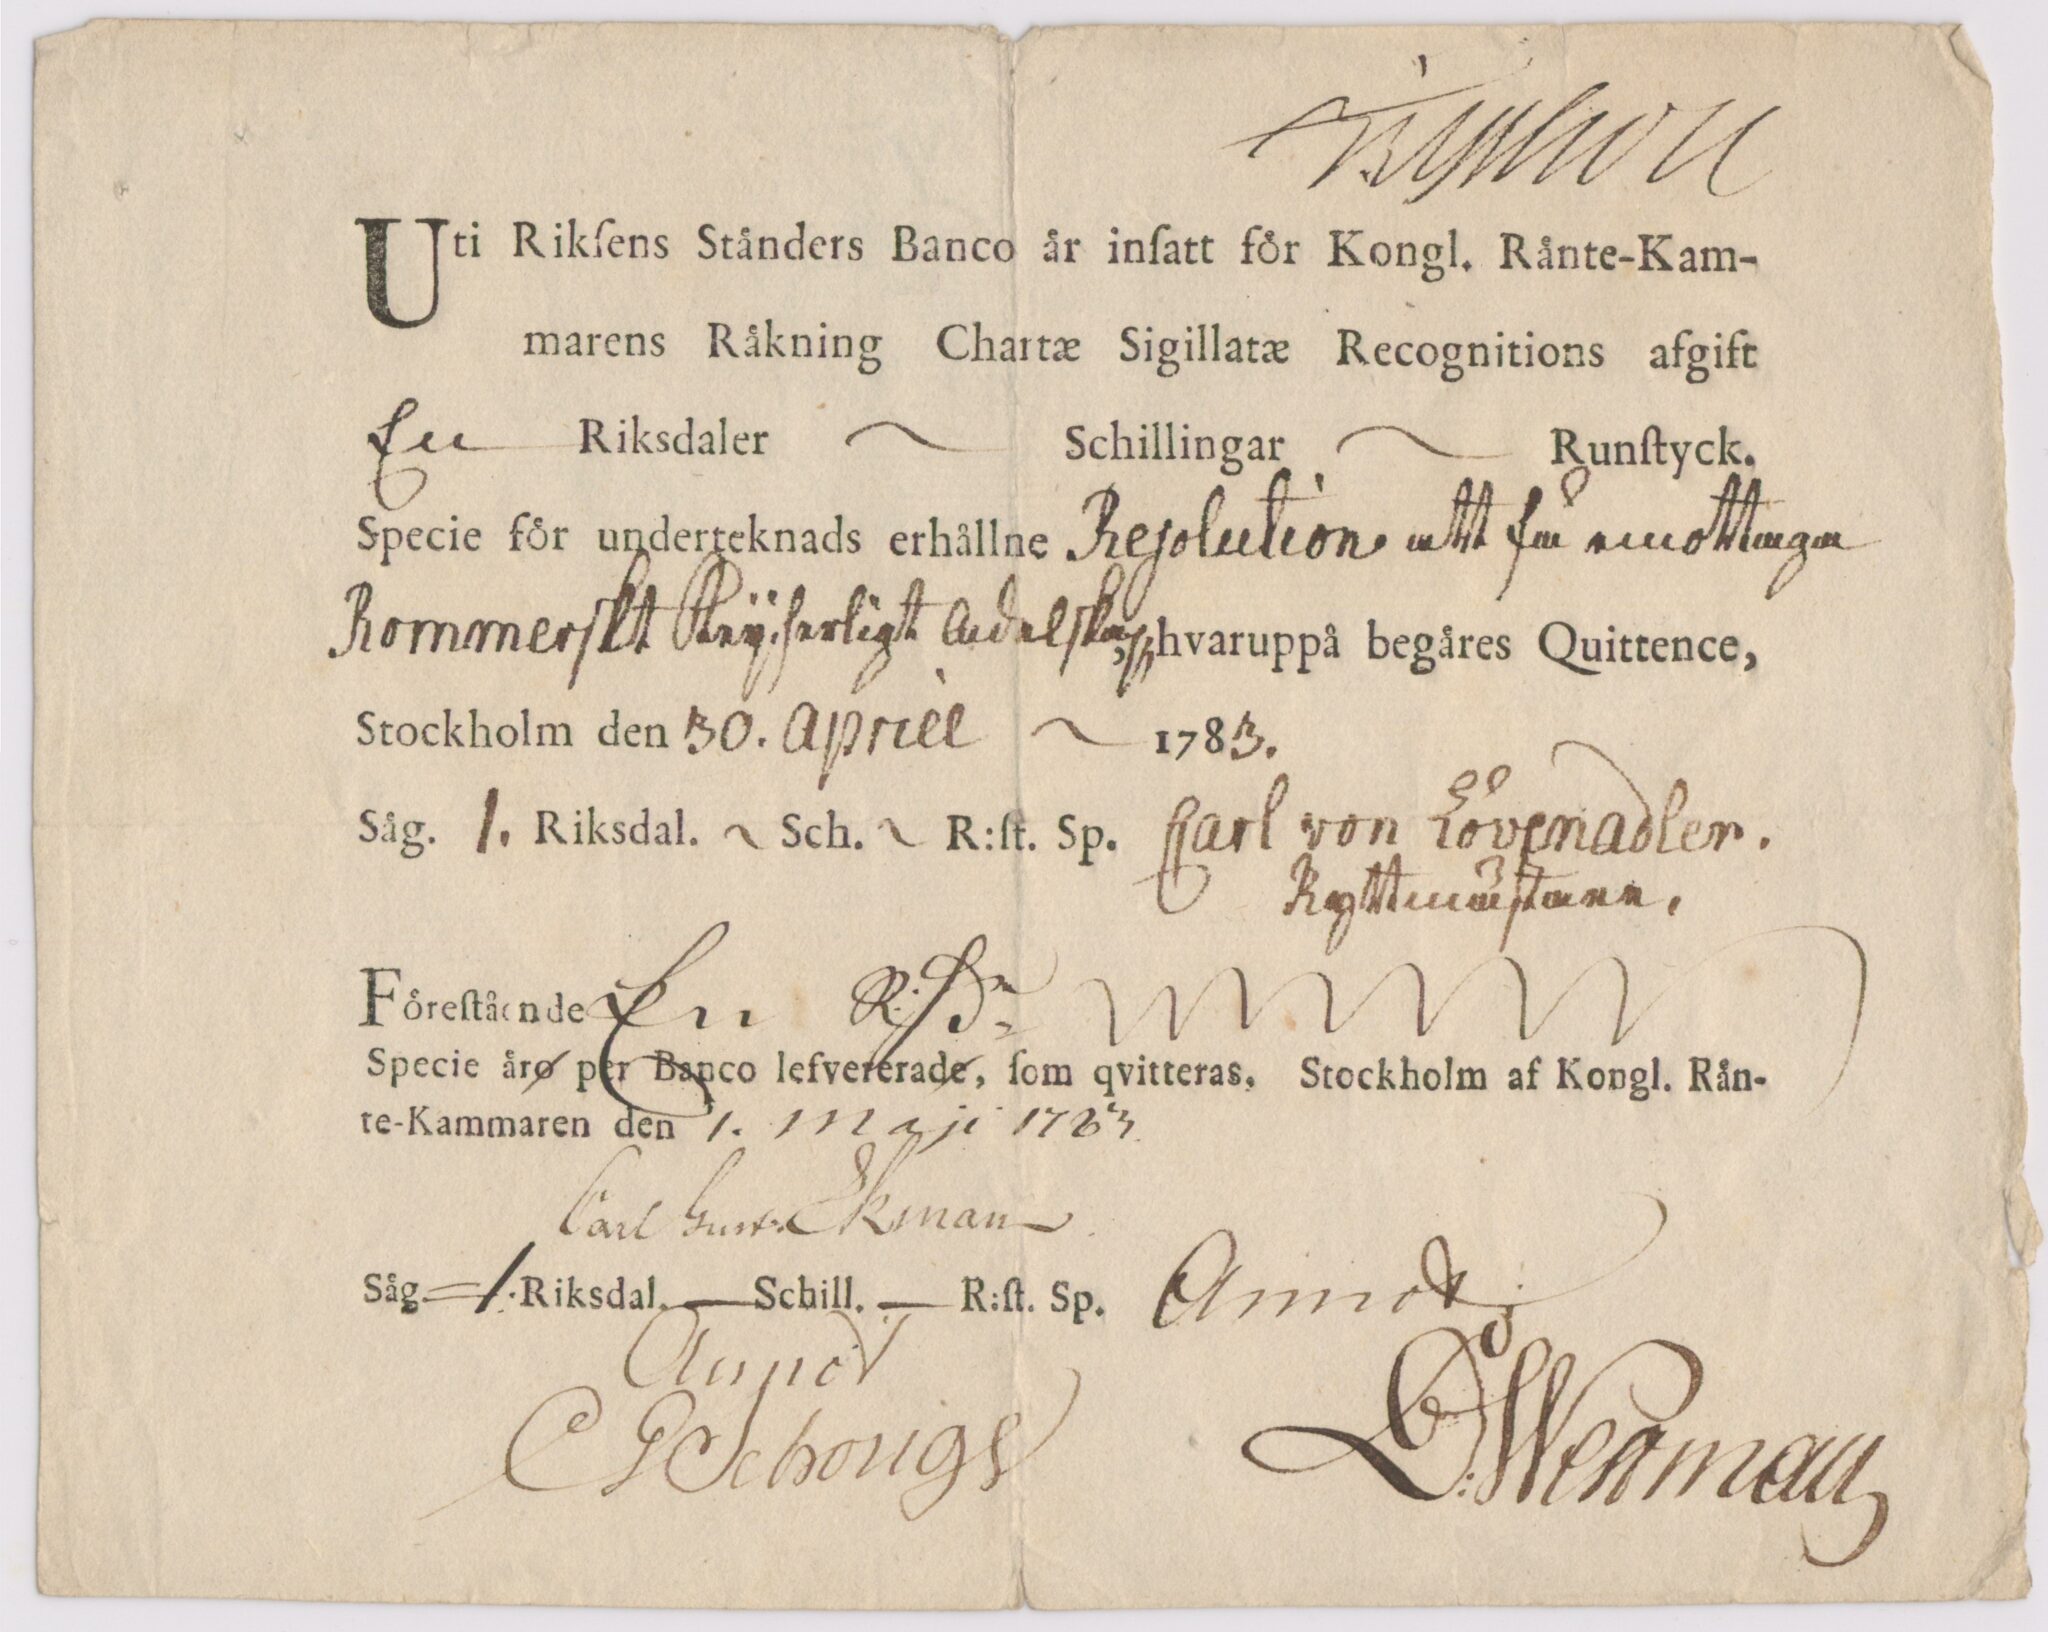 Uti Rikſens Stånders Banco år inſatt för Kongl. Rånte-Kam-
marens Råkning Chartæ Sigillatæ Recognitions afgift
En Riksdaler ~ Schillingar ~ Runſtyck.
Specie för underteknads erhållne Resolution att få emottaga
Rommerskt Keyserligt Adelskap, hvaruppå begåres Quittence,
Stockholm den 30. Aprill ~ 1783.
Såg. 1. Riksdal. ~ Sch. ~ R:ſt. Sp. Carl von Lövenadler.
Ryttmästare.
Föreſtående En R:
Specie åro per Banco lefvererade, ſom qvitteras. Stockholm af Kongl. Rån-
te-Kammaren den 1. Maji 1783.
Carl Gust. Ekman
Såg. 1. Riksdal. — Schill. — R:ſt. Sp. Annot
Annot